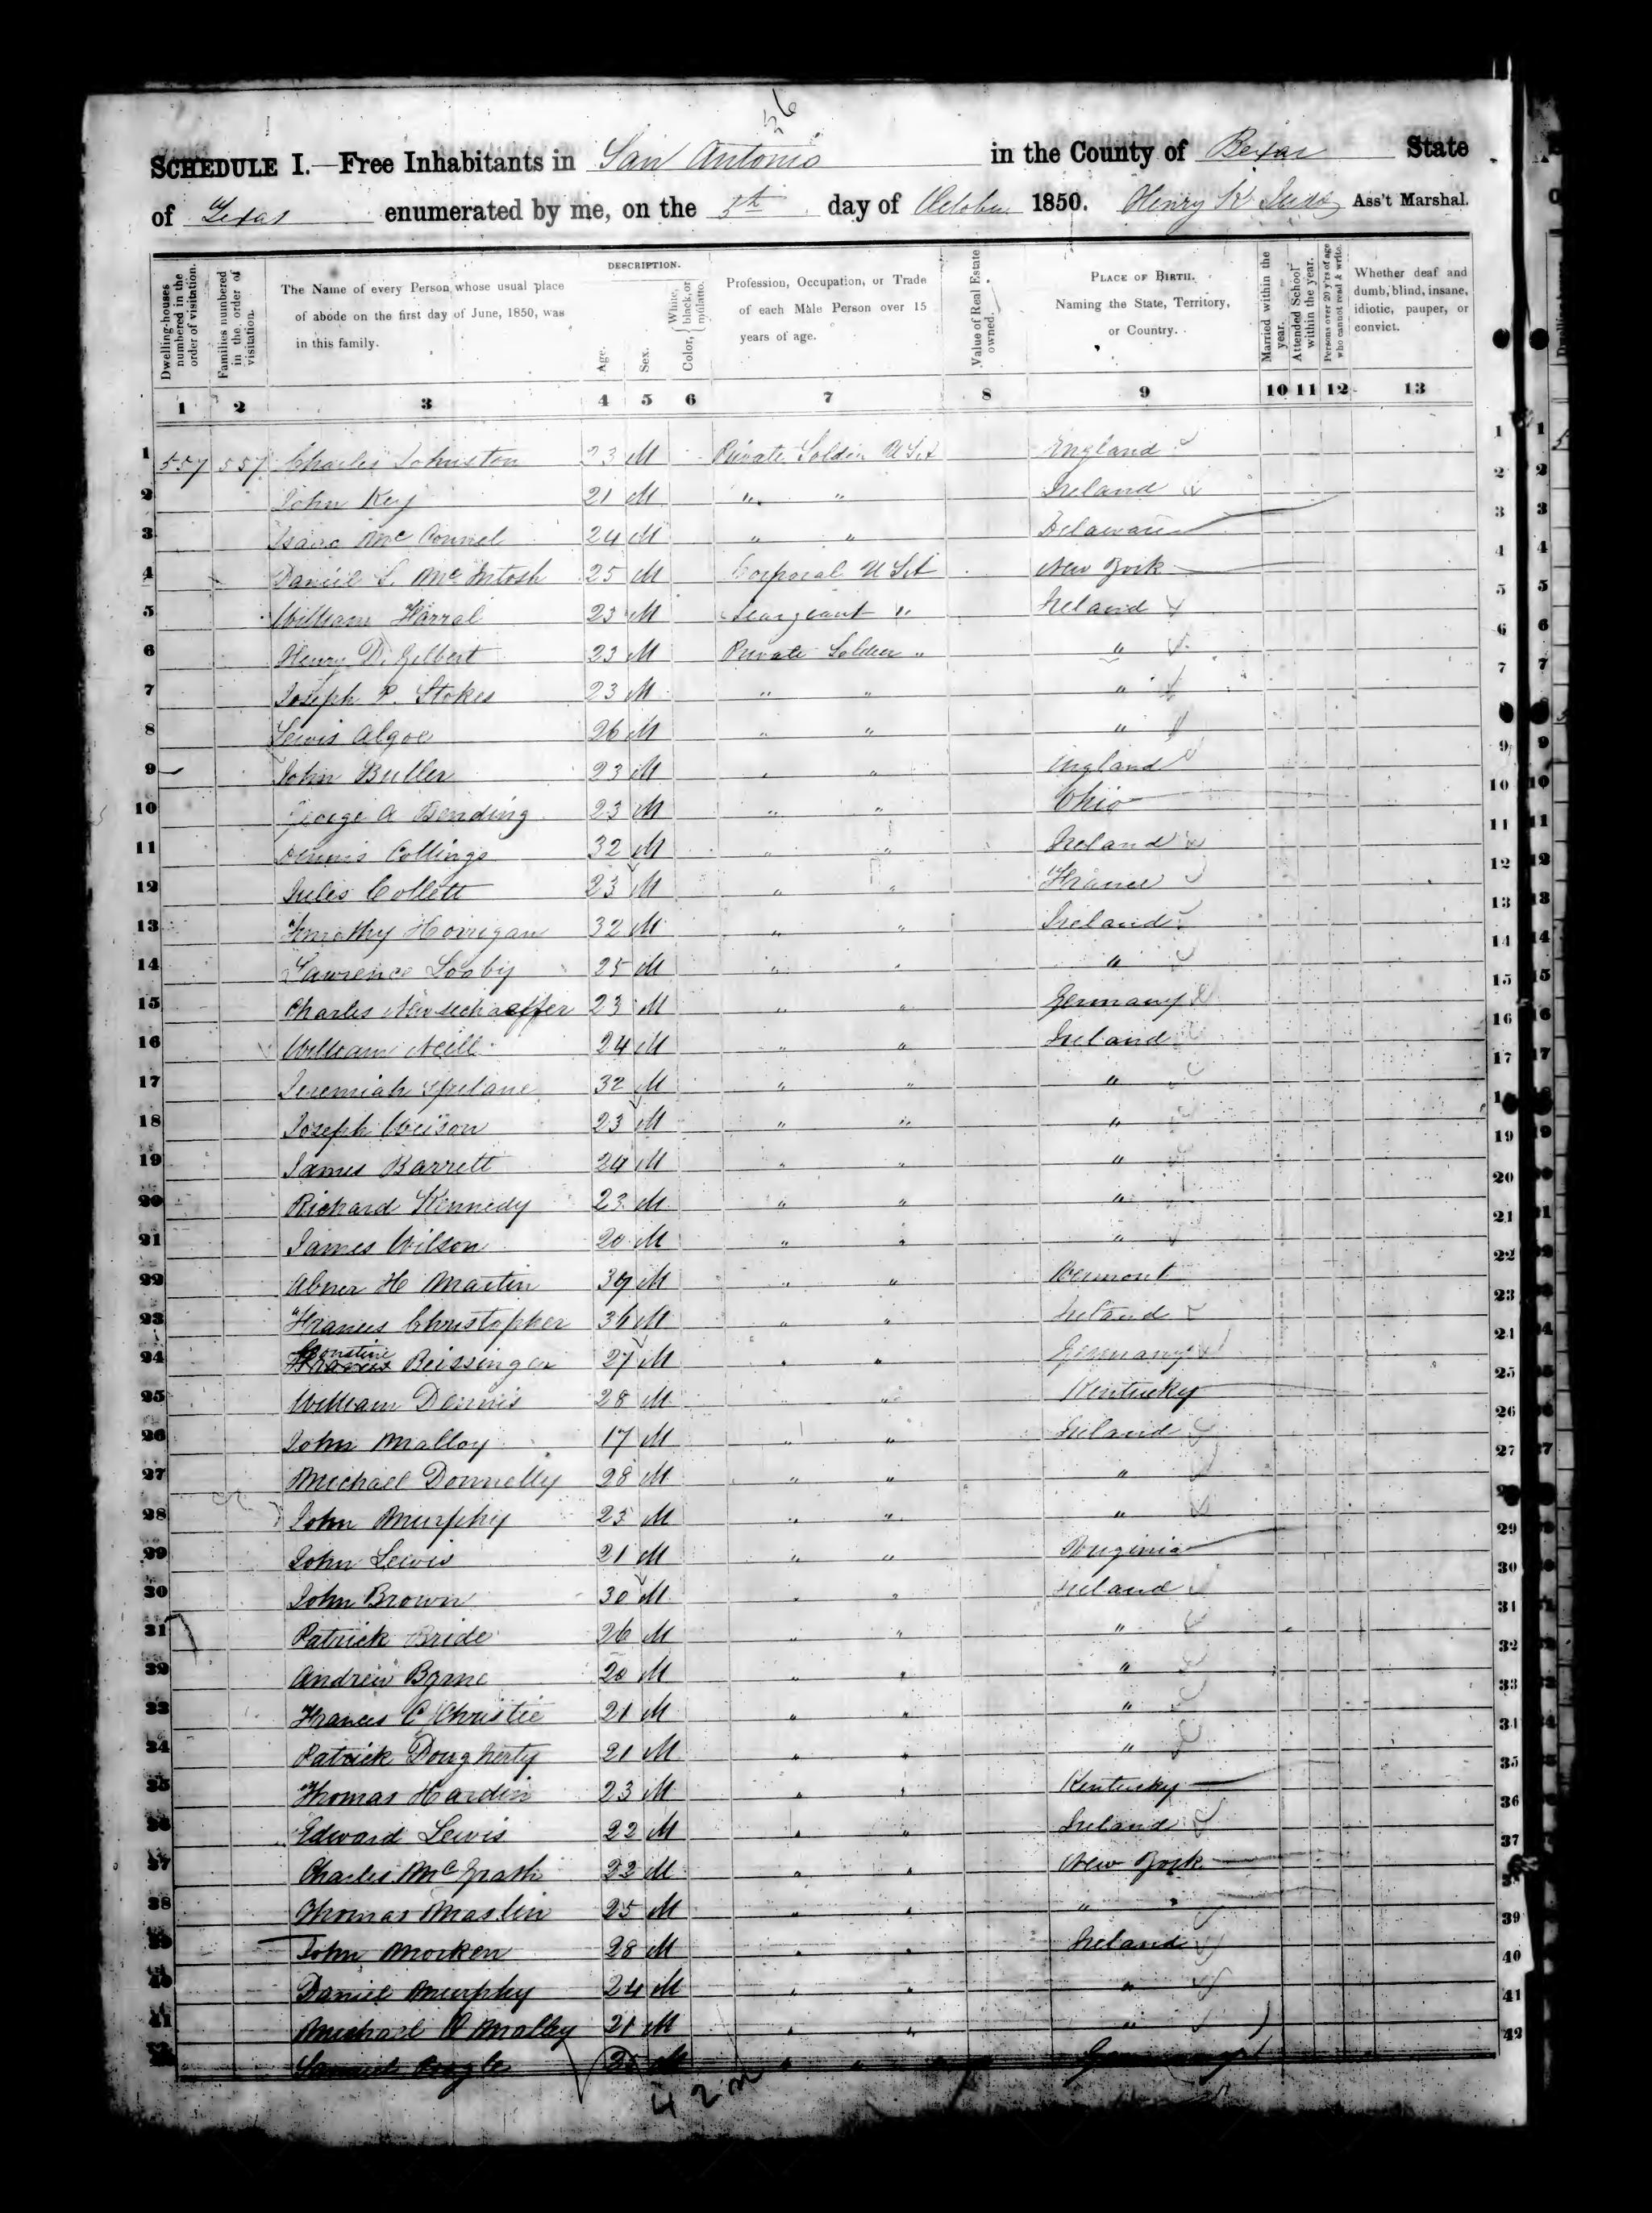 56
SCHEDULE I.—Free Inhabitants in San Antonio in the County of Bexar State
of Texas enumerated by me, on the 5th day of October 1850. Henry K Ass't Marshal.
Dwelling-houses numbered in the order of visitation.
Families numbered in the order of visitation.
The Name of every Person whose usual place of abode on the first day of June, 1850, was in this family.
DESCRIPTION.
Age.
Sex.
Color, { White, black, or mulatto.
Profession, Occupation, or Trade of each Male Person over 15 years of age.
Value of Real Estate owned.
PLACE OF BIRTH. Naming the State, Territory, or Country.
Married within the year.
Attended School within the year.
Persons over 20 y'rs of age who cannot read & write.
Whether deaf and dumb, blind, insane, idiotic, pauper, or convict.
1 2 3 4 5 6 7 8 9 10 11 12 13
1 557 557 Charles Johnston 23 M Private Soldier U S A England 1
2 John Key 21 M " " Ireland 2
3 Isaac McConnel 24 M " " Delaware 3
4 Daniel S. McIntosh 25 M Corporal U S A New York 4
5 William Harral 23 M Seargeant " Ireland 5
6 Henry D. Gilbert 23 M Private Soldier " " 6
7 Joseph P. Stokes 23 M " " " 7
8 Lewis Algoe 26 M " " "
9 John Butler 23 M " " England 9
10 George A Bending 23 M " " Ohio 10
11 Dennis Collings 32 M " " Ireland 11
12 Jules Collett 23 M " " France 12
13 Timothy Horrigan 32 M " " Ireland 13
14 Lawrence Looby 25 M " " " 14
15 Charles 23 M " " Germany 15
16 William Neill 24 M " " Ireland 16
17 Jeremiah Spelane 32 M " " " 17
18 Joseph Weison 23 M " " "
19 James Barrett 24 M " " " 19
20 Richard Kennedy 23 M " " " 20
21 James Wilson 20 M " " " 21
22 Abner H Martin 39 M " " Vermont 22
23 Francis Christopher 36 M " " Ireland 23
24 Francis Beissinger 27 M " " Germany 24
25 William Dennis 28 M " " Kentucky 25
26 John Malloy 17 M " " Ireland 26
27 Michael Donnelly 28 M " " " 27
28 John Murphy 25 M " " "
29 John Lewis 21 M " " Virginia 29
30 John Brown 30 M " " Ireland 30
31 Patrick Bride 26 M " " " 31
32 Andrew Byrne 20 M " " " 32
33 Francis C Christie 21 M " " " 33
34 Patrick Dougherty 21 M " " " 34
35 Thomas Hardin 23 M " " Kentucky 35
36 Edward Lewis 22 M " " Ireland 36
37 Charles McGrath 22 M " " New York 37
38 Thomas Maslin 25 M " " " "
39 John Morken 28 M " " Ireland 39
40 Daniel Murphy 24 M " " " 40
41 Michael O Malley 21 M " " " 41
Samuel M " " Germany 42
42 m